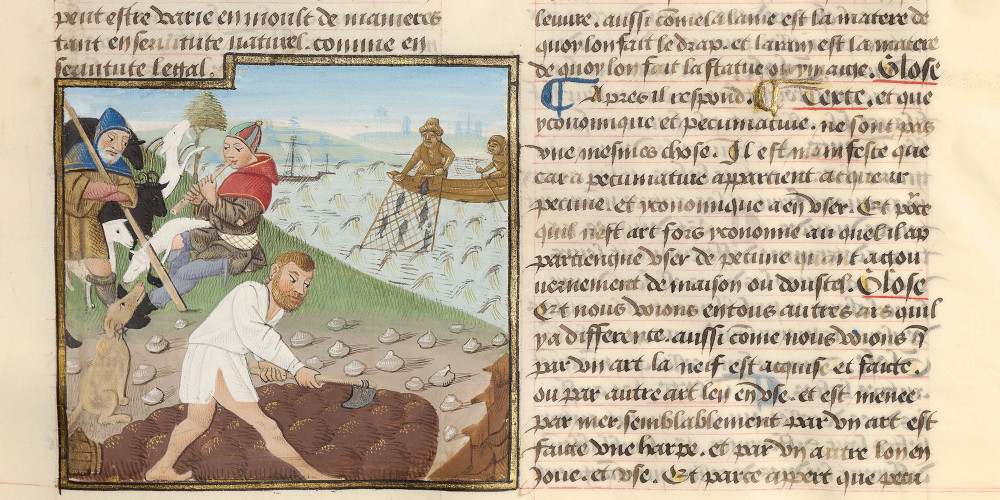 peut estre varie en moult de manieres
tant en servitute naturel. comme en
servitute legal.
leuvre. aussi come la laine est la matere de
quoy lon fait le drap. et larain est la matere
de quoy lon fait la statue ou ymaige. Glose
Apres il respond. Texte. et que
yconomique et pecuniative. ne sont pas
une mesmes chose. Il est manifeste que
car a pecuniative appartient acquerir
pecune. et yconomique a en user. Et pour
quil nest art fors yconomie au quel il ap
partienque user de pecune quant a gou
vernement de maison ou doustel. Glose
Et nous voions en tous autres ars quil
y a difference. aussi come nous voions q̃
par un art la neif est acquise et faicte.
ou par autre art len en use. et est menee
par mer. semblablement par un art est
faicte une harpe. et par un autre lon en
joue. et use. Et parce appert que pecu